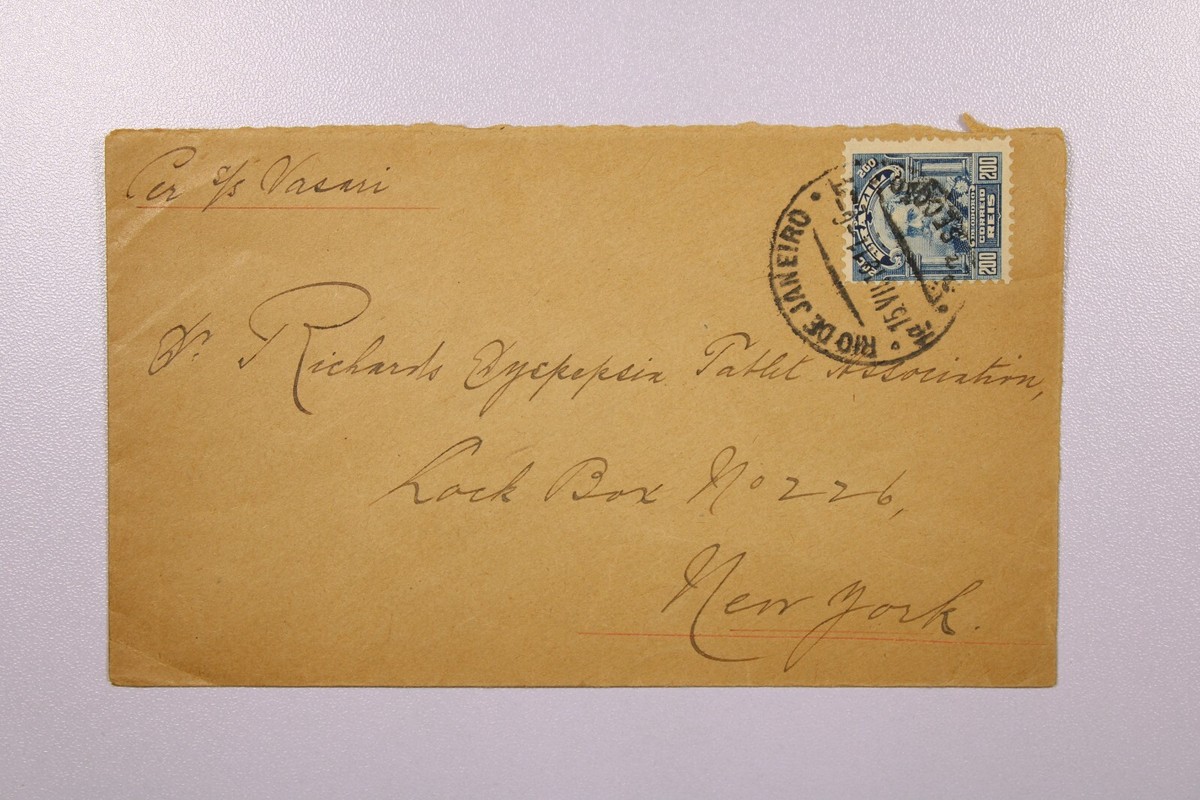 Per s/s Vasari
200 BRAZIL 200
200 CORREIO REIS 200
RIO DE JANEIRO
1ª SECÇÃO
15.VII
Dr. Richards Dyspepsia Tablet Association,
Lock Box No 226,
New York.